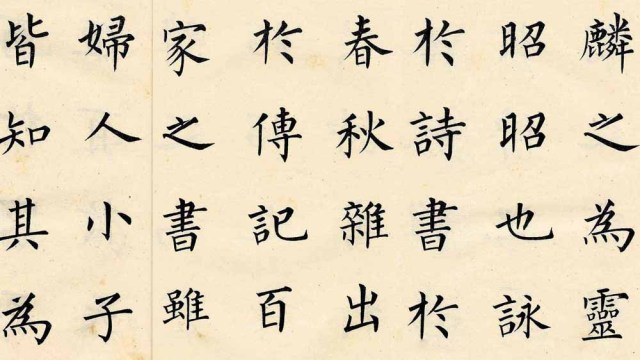 麟之為靈
昭昭也詠
於詩書於
春秋雜出
於傳記百
家之書雖
婦人小子
皆知其為